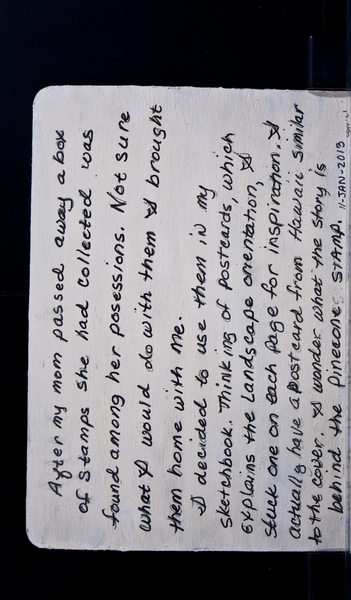 After my mom passed away a box
of stamps she had collected was
found among her posessions. Not sure
what I would do with them I brought
them home with me.
I decided to use them in my
sketchbook. Thinking of postcards, which
explains the landscape orientation, I
stuck one on each page for inspiration. I
actually have a postcard from Hawaii similar
to the cover. I wonder what the story is
behind the Pineapple stamp. 11-JAN-2013